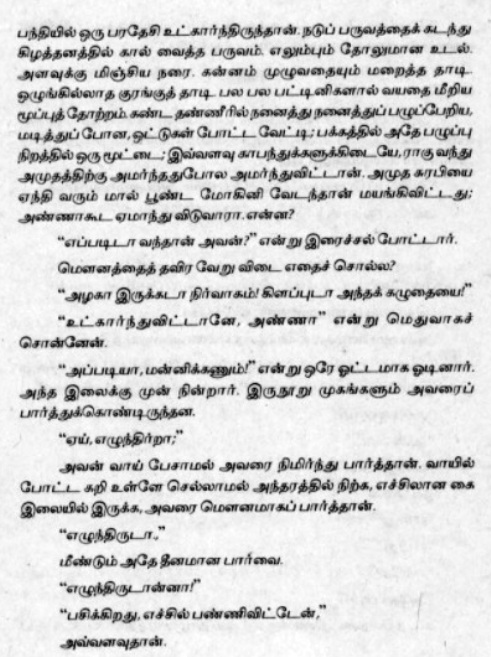 பந்தியில் ஒரு பரதேசி உட்கார்ந்திருந்தான். நடுப் பருவத்தைக் கடந்து
கிழத்தனத்தில் கால் வைத்த பருவம். எலும்பும் தோலுமான உடல்.
அளவுக்கு மிஞ்சிய நரை. கன்னம் முழுவதையும் மறைத்த தாடி.
ஒழுங்கில்லாத குரங்குத் தாடி. பல பல பட்டினிகளால் வயதை மீறிய
மூப்புத் தோற்றம். கண்ட தண்ணீரில் நனைத்து நனைத்துப் பழுப்பேறிய,
மடித்துப் போன, ஒட்டுகள் போட்ட வேட்டி; பக்கத்தில் அதே பழுப்பு
நிறத்தில் ஒரு மூட்டை; இவ்வளவு காபந்துக்களுக்கிடையே, ராகு வந்து
அமுதத்திற்கு அமர்ந்ததுபோல அமர்ந்துவிட்டான். அமுத சுரபியை
ஏந்தி வரும் மால் பூண்ட மோகினி வேடந்தான் மயங்கிவிட்டது;
அண்ணாகூட ஏமாந்து விடுவாரா. என்ன?
“எப்படிடா வந்தான் அவன்?” என்று இரைச்சல் போட்டார்.
மௌனத்தைத் தவிர வேறு விடை எதைச் சொல்ல?
“அழகா இருக்கடா நிர்வாகம்! கிளப்புடா அந்தக் கழுதையை!”
“உட்கார்ந்துவிட்டானே, அண்ணா” என்று மெதுவாகச்
சொன்னேன்.
“அப்படியா, மன்னிக்கணும்!” என்று ஒரே ஓட்டமாக ஓடினார்.
அந்த இலைக்கு முன் நின்றார். இருநூறு முகங்களும் அவரைப்
பார்த்துக்கொண்டிருந்தன.
“ஏய், எழுந்திர்றா;”
அவன் வாய் பேசாமல் அவரை நிமிர்ந்து பார்த்தான். வாயில்
போட்ட கறி உள்ளே செல்லாமல் அந்தரத்தில் நிற்க, எச்சிலான கை
இலையில் இருக்க, அவரை மௌனமாகப் பார்த்தான்.
“எழுந்திருடா.”
மீண்டும் அதே தீனமான பார்வை.
“எழுந்திருடான்னா!”
“பசிக்கிறது, எச்சில் பண்ணிவிட்டேன்,”
அவ்வளவுதான்.